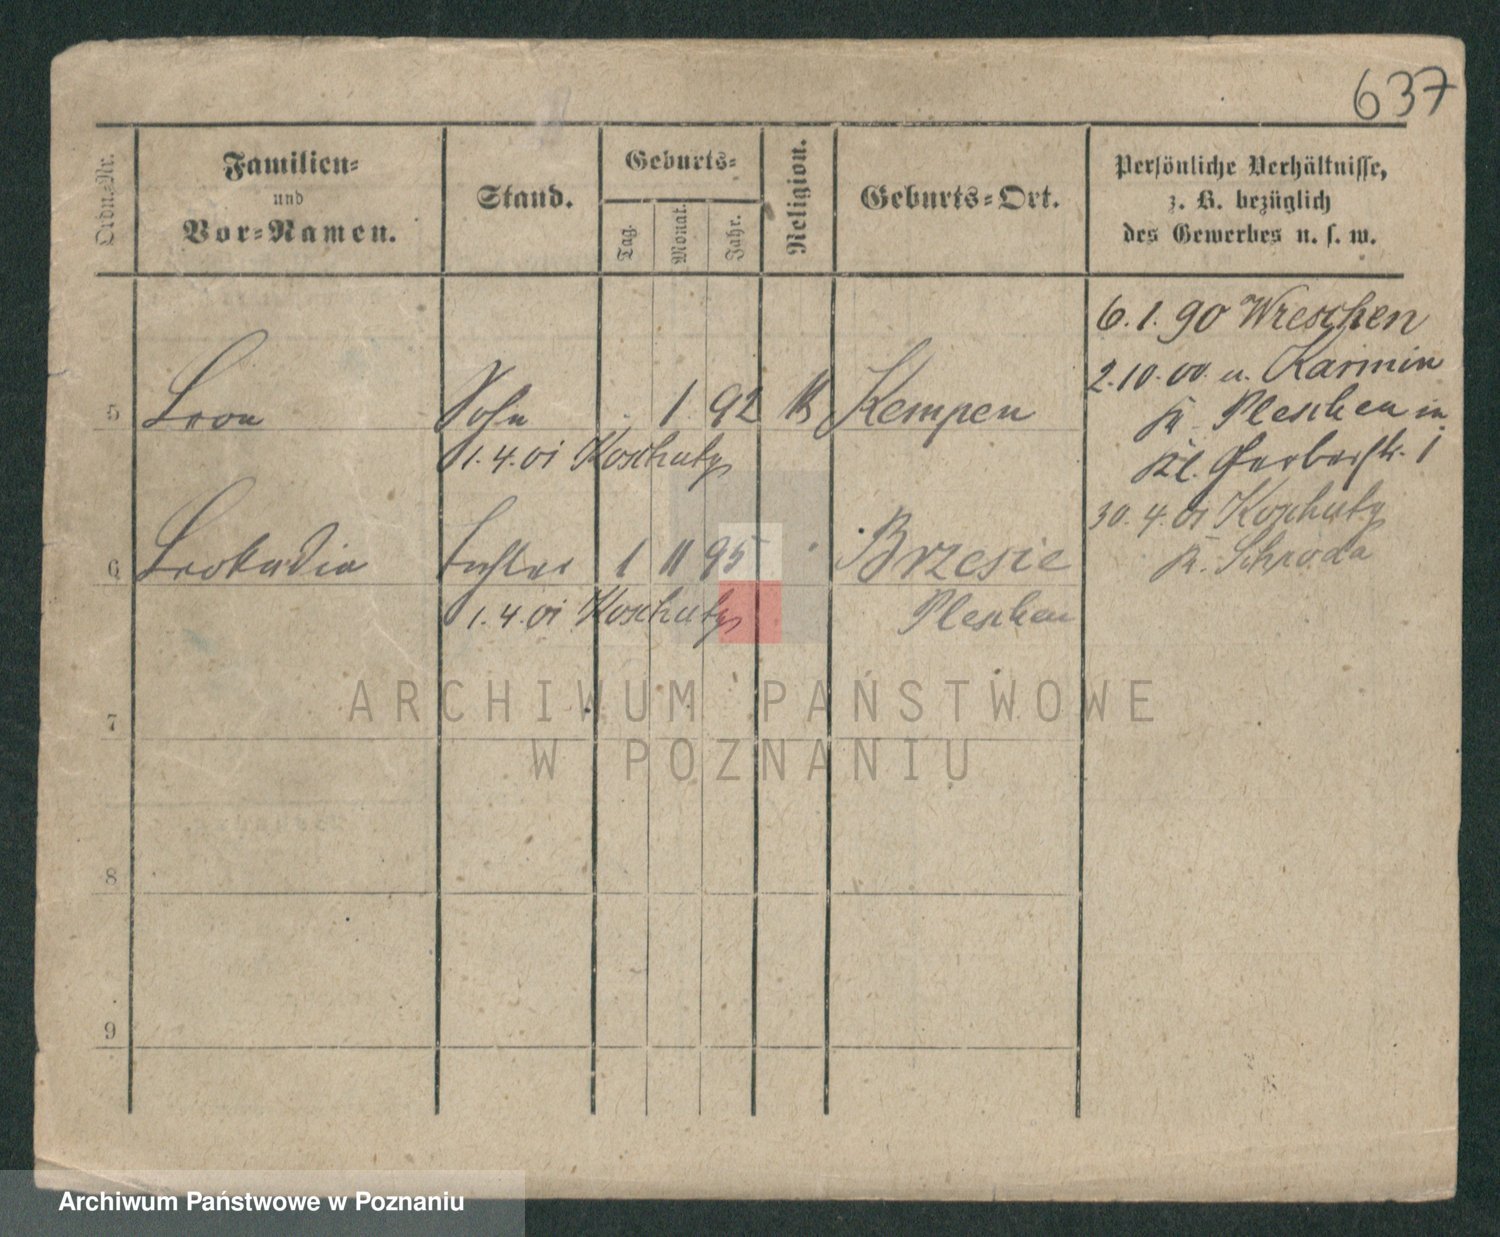 637
Ordn.-Nr.
Familien-
und
Vor-Namen.
Stand.
Geburts-
Tag.
Monat.
Jahr.
Religion.
Geburts-Ort.
Persönliche Verhältnisse,
z. B. bezüglich
des Gewerbes u. s. w.
6. 1. 90 Wreschen
2. 10. 00. u. Karmin
K. Pleschen in
Kl. Gerberstr. 1
30. 4. 01 Koschuty
K. Schroda
5 Leon Sohn 1 92 K Kempen
1. 4. 01 Koschuty
6 Leokadia Tochter 1 11 95 Brzesie
1. 4. 01 Koschuty Pleschen
7
8
9
ARCHIWUM PAŃSTWOWE
W POZNANIU
Archiwum Państwowe w Poznaniu